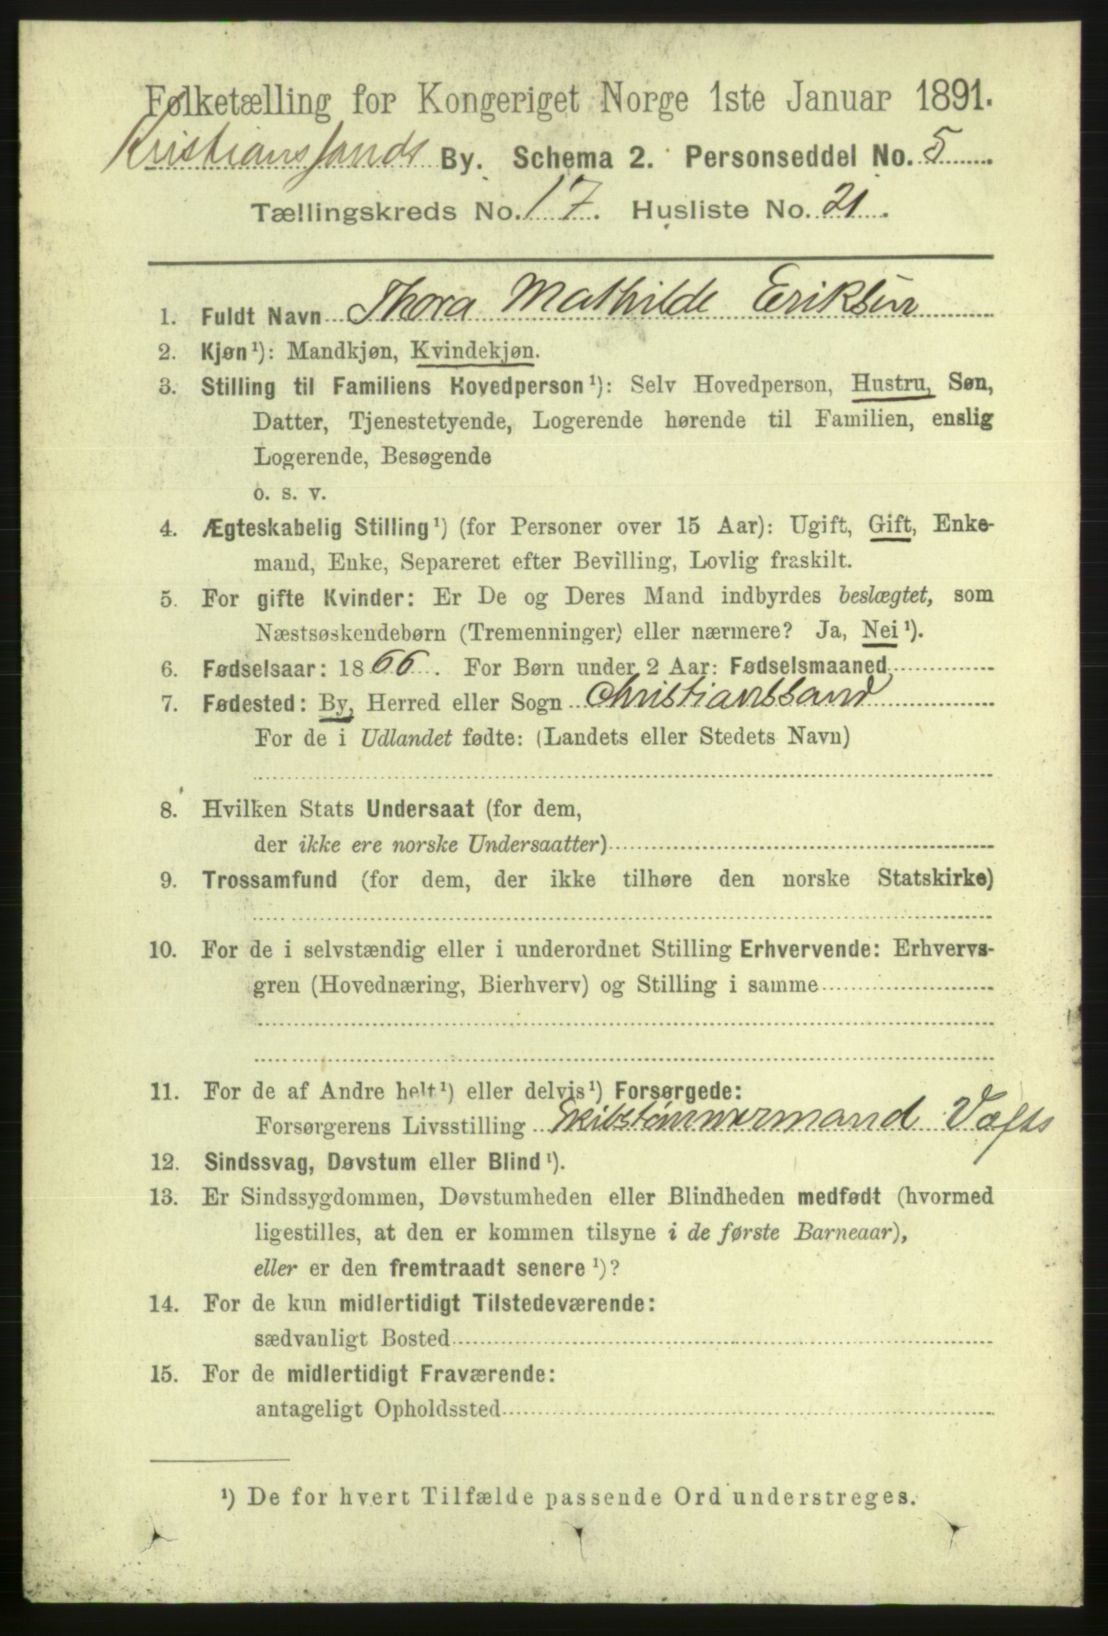 Følketælling for Kongeriget Norge 1ste Januar 1891.
Kristianssands By. Schema 2. Personseddel No. 5
Tællingskreds No. 17. Husliste No. 21.
1. Fuldt Navn Thora Mathilde Eriksen
2. Kjøn¹): Mandkjøn, Kvindekjøn.
3. Stilling til Familiens Hovedperson¹): Selv Hovedperson, Hustru, Søn,
Datter, Tjenestetyende, Logerende hørende til Familien, enslig
Logerende, Besøgende
o. s. v.
4. Ægteskabelig Stilling¹) (for Personer over 15 Aar): Ugift, Gift, Enke-
mand, Enke, Separeret efter Bevilling, Lovlig fraskilt.
5. For gifte Kvinder: Er De og Deres Mand indbyrdes beslægtet, som
Næstsøskendebørn (Tremenninger) eller nærmere? Ja, Nei¹).
6. Fødselsaar: 1866. For Børn under 2 Aar: Fødselsmaaned
7. Fødested: By, Herred eller Sogn Christianssand
For de i Udlandet fødte: (Landets eller Stedets Navn)
8. Hvilken Stats Undersaat (for dem,
der ikke ere norske Undersaatter)
9. Trossamfund (for dem, der ikke tilhøre den norske Statskirke)
10. For de i selvstændig eller i underordnet Stilling Erhvervende: Erhvervs-
gren (Hovednæring, Bierhverv) og Stilling i samme
11. For de af Andre helt¹) eller delvis¹) Forsørgede:
Forsørgerens Livsstilling Skibstømmermand Væfts
12. Sindssvag, Døvstum eller Blind¹).
13. Er Sindssygdommen, Døvstumheden eller Blindheden medfødt (hvormed
ligestilles, at den er kommen tilsyne i de første Barneaar),
eller er den fremtraadt senere¹)?
14. For de kun midlertidigt Tilstedeværende:
sædvanligt Bosted
15. For de midlertidigt Fraværende:
antageligt Opholdssted
¹) De for hvert Tilfælde passende Ord understreges.